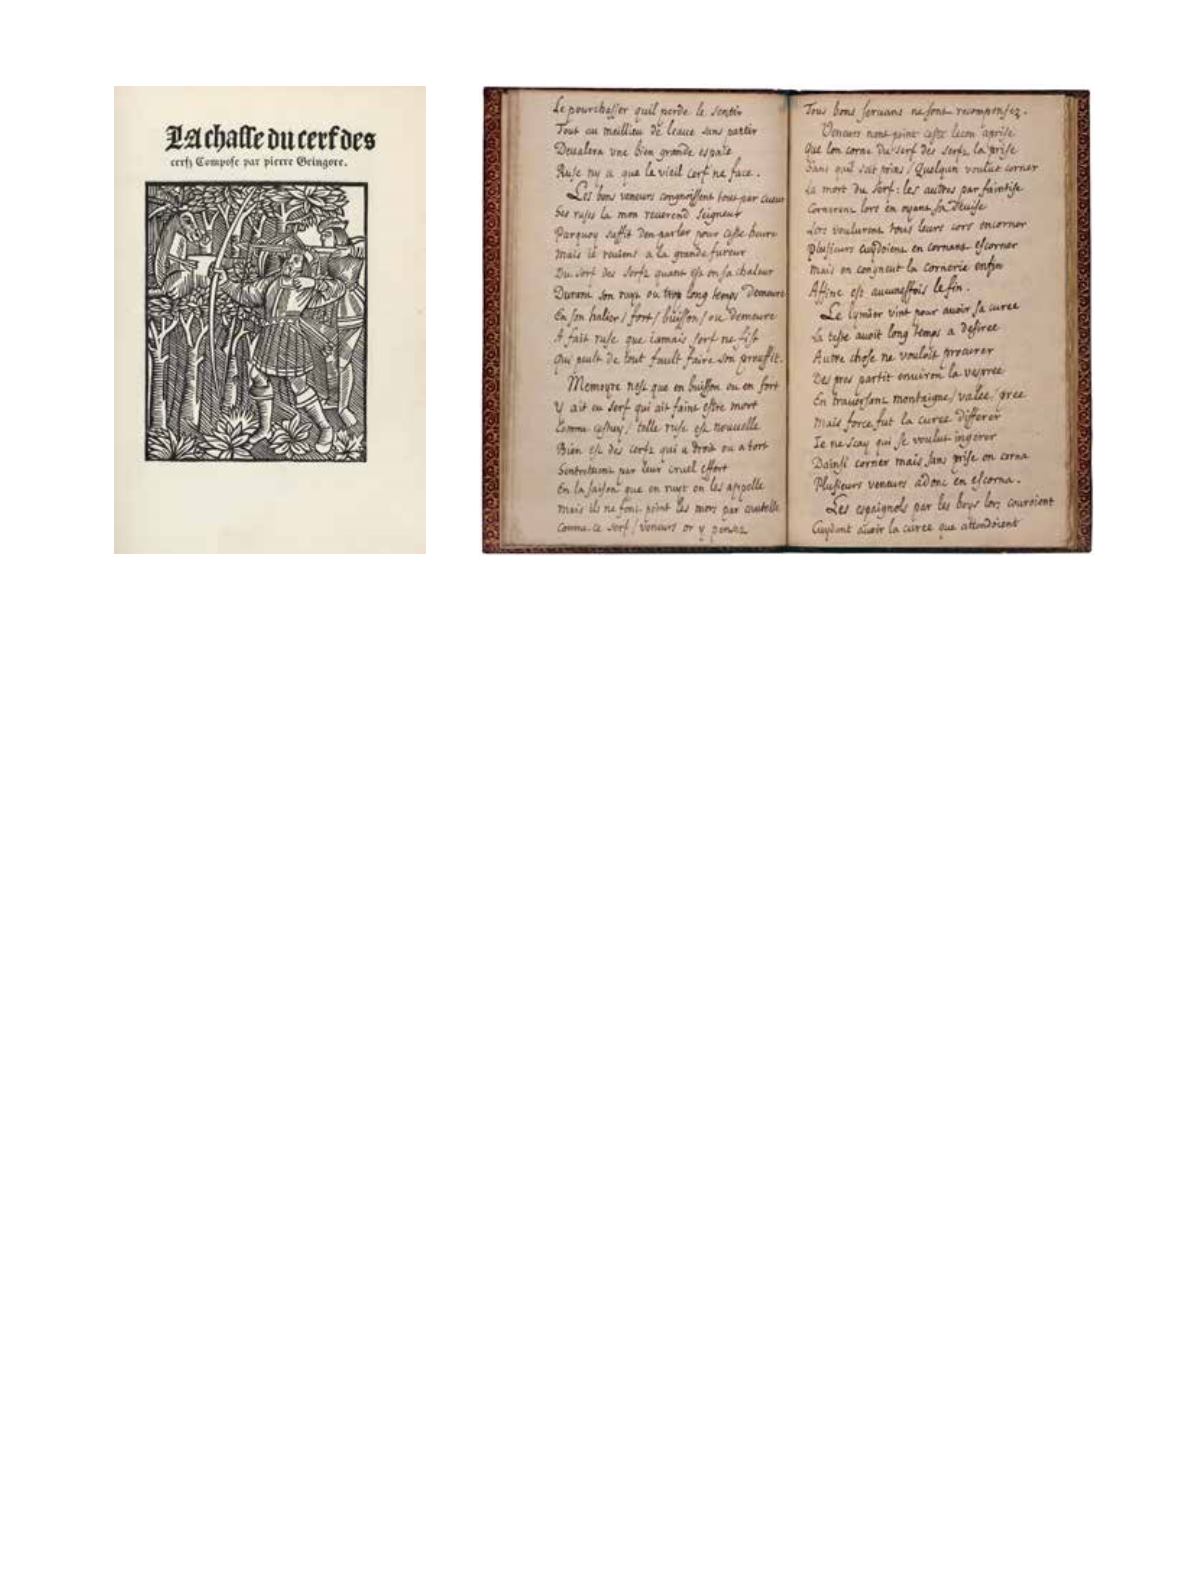 LA chasse du cerf des
cerfz Compose par pierre Gringore.
Le pourchasser quil perde le sentir
Tout au meillieu de leaue sans partir
Deualera vne bien grande espace
Ruse ny a que le vieil cerf ne face.
Les bons veneurs congnoissent tous par cueur
Ses ruses la mon reuerend seigneur
Parquoy suffit den parler pour ceste heure
Mais ie reuiens a la grande fureur
Du serf des serfz quant est en sa chaleur
Durant son ruyt ou trop long temps demeure
En son halier / fort / buisson / ou demeure
A fait ruse que iamais serf ne fist
Qui peult de tout fault faire son prouffit.
Memoyre nest que en buisson ou en fort
Y ait eu serf qui ait faint estre mort
Comme cestuy / telle ruse est nouuelle
Bien est des cerfz qui a droit ou a tort
Sentretuent par leur cruel effort
En la saison que en ruyt on les appelle
Mais ils ne font point les mors par cautelle
Comme ce serf / veneurs or y pensez
Tous bons seruans ne sont recompensez.
Veneurs nont point ceste lecon aprise
Que lon corne du serf des serfz la prise
Sans quil soit prins / Quelquun voulut corner
La mort du serf : les autres par faintise
Cornerent lors en oyant sa deuise
Lors voulurent tous leurs cors encorner
Plusieurs cuydoient en cornant escorner
Mais on congneut la cornerie enfin
Affine est aucuneffois le fin.
Le lymier vint pour auoir sa curee
La teste auoit long temps a desiree
Autre chose ne vouloit procurer
Des pres partit enuiron la vespree
En trauersant montaigne / valee / pree
Mais force fut la curee differer
Ie ne scay qui se voulut ingerer
Dainsi corner mais sans prise on corna
Plusieurs veneurs adonc en escorna.
Les espaignols par les boys lors couroient
Cuydant auoir la curee que attendoient